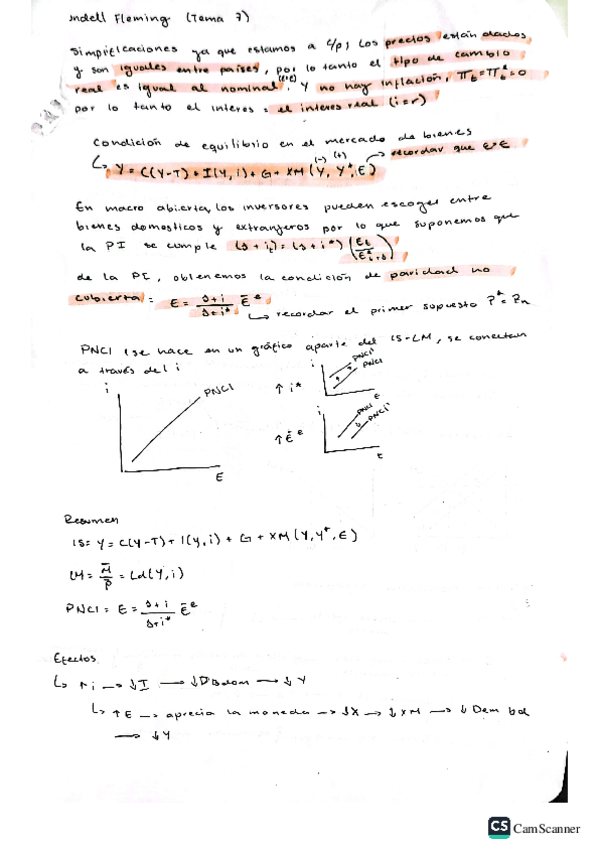 ndell Fleming (Tema 7)
Simplificaciones ya que estamos a c/p, los precios están dados
y son iguales entre países, por lo tanto el tipo de cambio
real es igual al nominal. (E=ε) Y no hay inflación, π_t = π_t^e = 0
por lo tanto el interes = el interes real (i=r)
Condición de equilibrio en el mercado de bienes
↳ Y = C(Y-T) + I(Y, i) + G + XM (Y, Y*, E) → recordar que E=ε
(-) (+)
En macro abierta, los inversores pueden escoger entre
bienes domesticos y extranjeros por lo que suponemos que
la PI se cumple (1+i_t) = (1+i*) (E_t / E^e_t+1)
de la PI, obtenemos la condición de paridad no
cubierta = E = (1+i / 1+i*) Ē^e
↳ recordar el primer supuesto
PNCI (se hace en un gráfico aparte del IS-LM, se conectan
a través del i
i PNCI E
↑ i* i PNCI' PNCI E
↑ Ē^e i PNCI PNCI' E
Resumen
IS= Y = C(Y-T) + I(Y, i) + G + XM (Y, Y*, E)
LM = M̄/P̄ = Ld(Y, i)
PNCI = E = (1+i / 1+i*) Ē^e
Efectos
↳ ↑i → ↓I → ↓D → ↓Y
↳ ↑E → aprecia la moneda → ↓X → ↓XM → ↓Dem
→ ↓Y
CS CamScanner